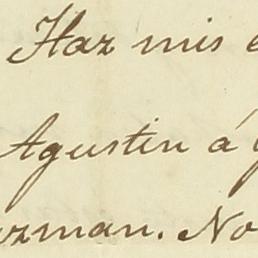 Haz mis
Agustin á
zman. No